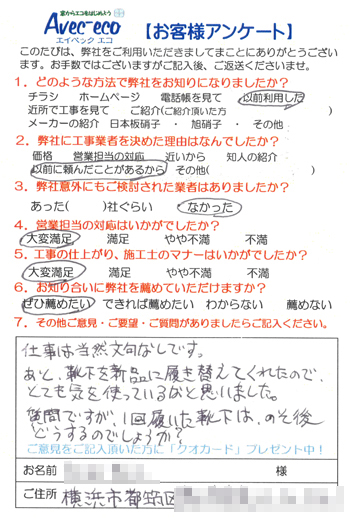 窓からエコをはじめよう
Avec-eco
エイベック エコ
【お客様アンケート】
このたびは、弊社をご利用いただきましてまことにありがとうござい
ます。お手数ではございますがご記入後、ご返送くださいませ。
1. どのような方法で弊社をお知りになりましたか?
チラシ ホームページ 電話帳を見て 以前利用した
近所で工事を見て ご紹介(ご紹介頂いた方 )
メーカーの紹介 日本板硝子・ 旭硝子・ その他
2. 弊社に工事業者を決めた理由はなんでしたか?
価格 営業担当の対応 近いから 知人の紹介
以前に頼んだことがあるから その他( )
3. 弊社意外にもご検討された業者はありましたか?
あった( )社ぐらい なかった
4. 営業担当の対応はいかがでしたか?
大変満足 満足 やや不満 不満
5. 工事の仕上がり、施工士のマナーはいかがでしたか?
大変満足 満足 やや不満 不満
6. お知り合いに弊社を薦めていただけますか?
ぜひ薦めたい できれば薦めたい わからない 薦めない
7. その他ご意見・ご要望・ご質問がありましたらご記入ください。
仕事は当然文句なしです。
あと、靴下を新品に履き替えてくれたので、
とても気を使っているなと思いました。
質問ですが、1回履いた靴下は、その後
どうするのでしょうか?
ご意見をご記入頂いた方に「クオカード」プレゼント中!
お名前 様
ご住所 横浜市都筑区